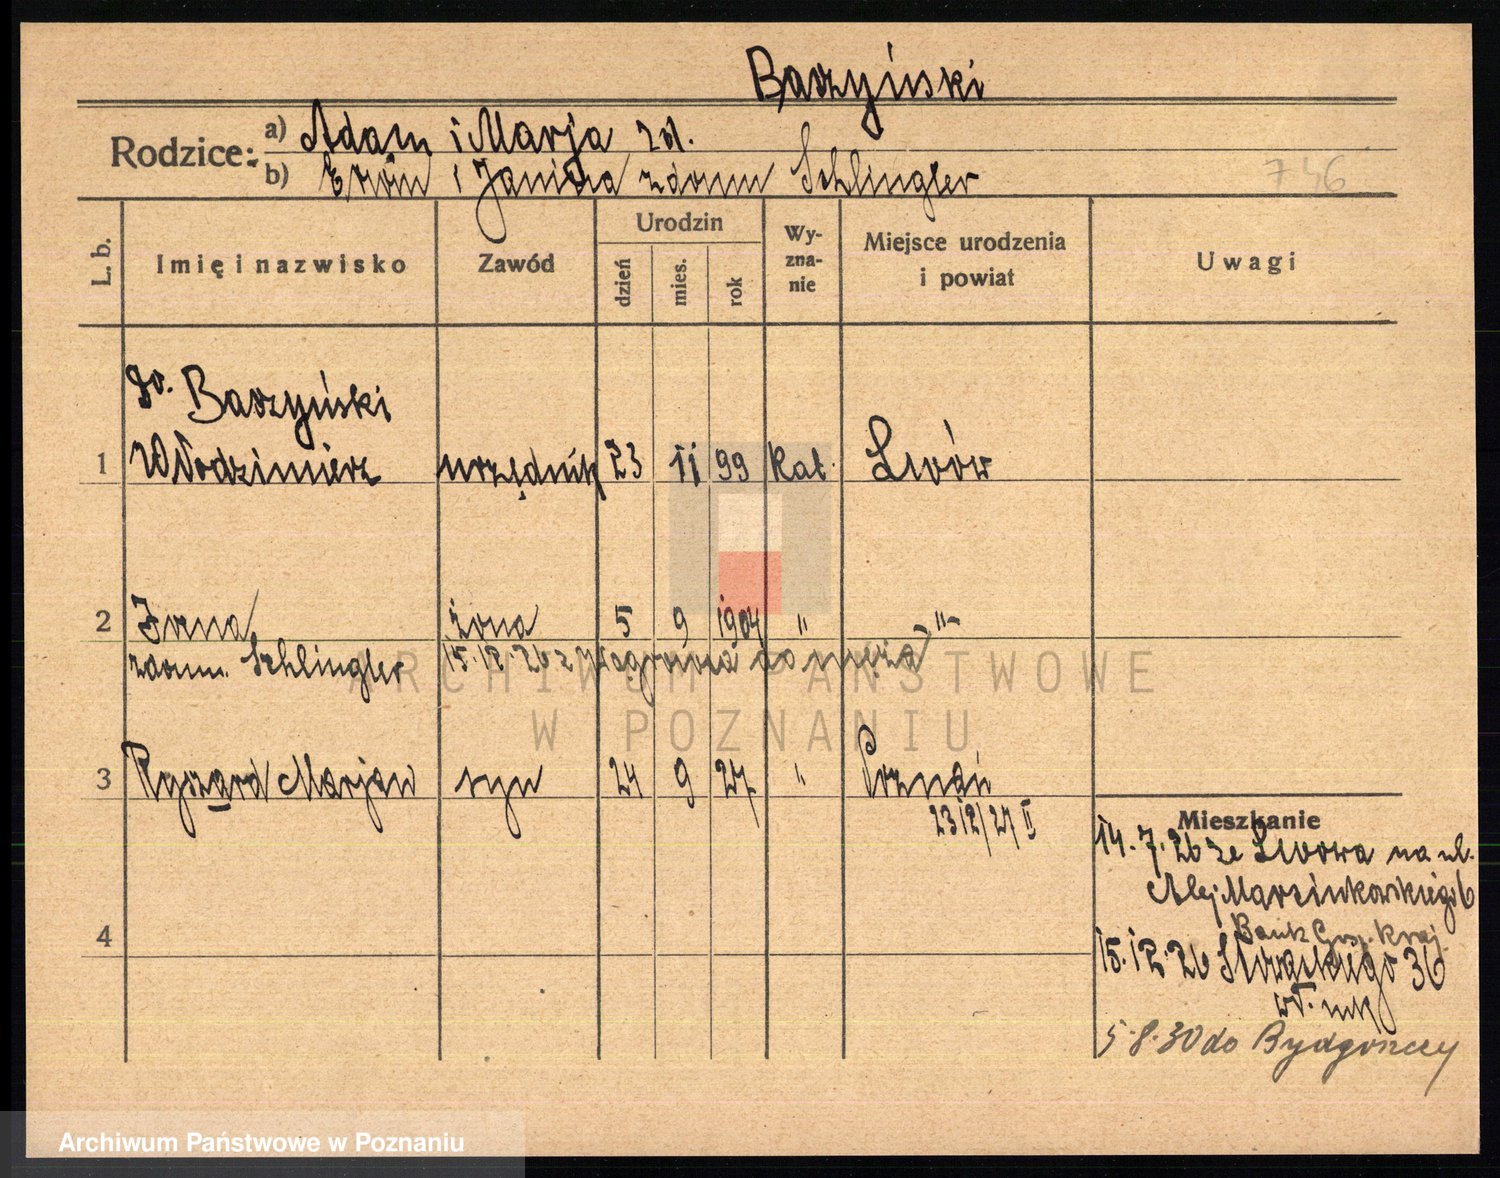 Baszyński
Rodzice: a) Adam i Marja zd.
b) Erwin i Janina zdomu Schlingler
746
L. b. Imię i nazwisko Zawód Urodzin dzień mies. rok Wyznanie Miejsce urodzenia i powiat Uwagi
Dr. Baszyński
1 Włodzimierz urzędnik 23 11 99 kat. Lwów
2 Irena żona 5 9 1904 " "
zdom. Schlingler 15.12.26 z do męża
3 Ryszard Marjan syn 24 9 27 " Poznań
23 12/27 II
Mieszkanie
14.7.26 ze Lwowa na ul.
Alej Marcinkowskiego 6
Bank Gosp. Kraj.
4
15.12.26 Słowackiego 36
wł. mk
5.8.30 do Bydgoszczy
ARCHIWUM PAŃSTWOWE
W POZNANIU
Archiwum Państwowe w Poznaniu